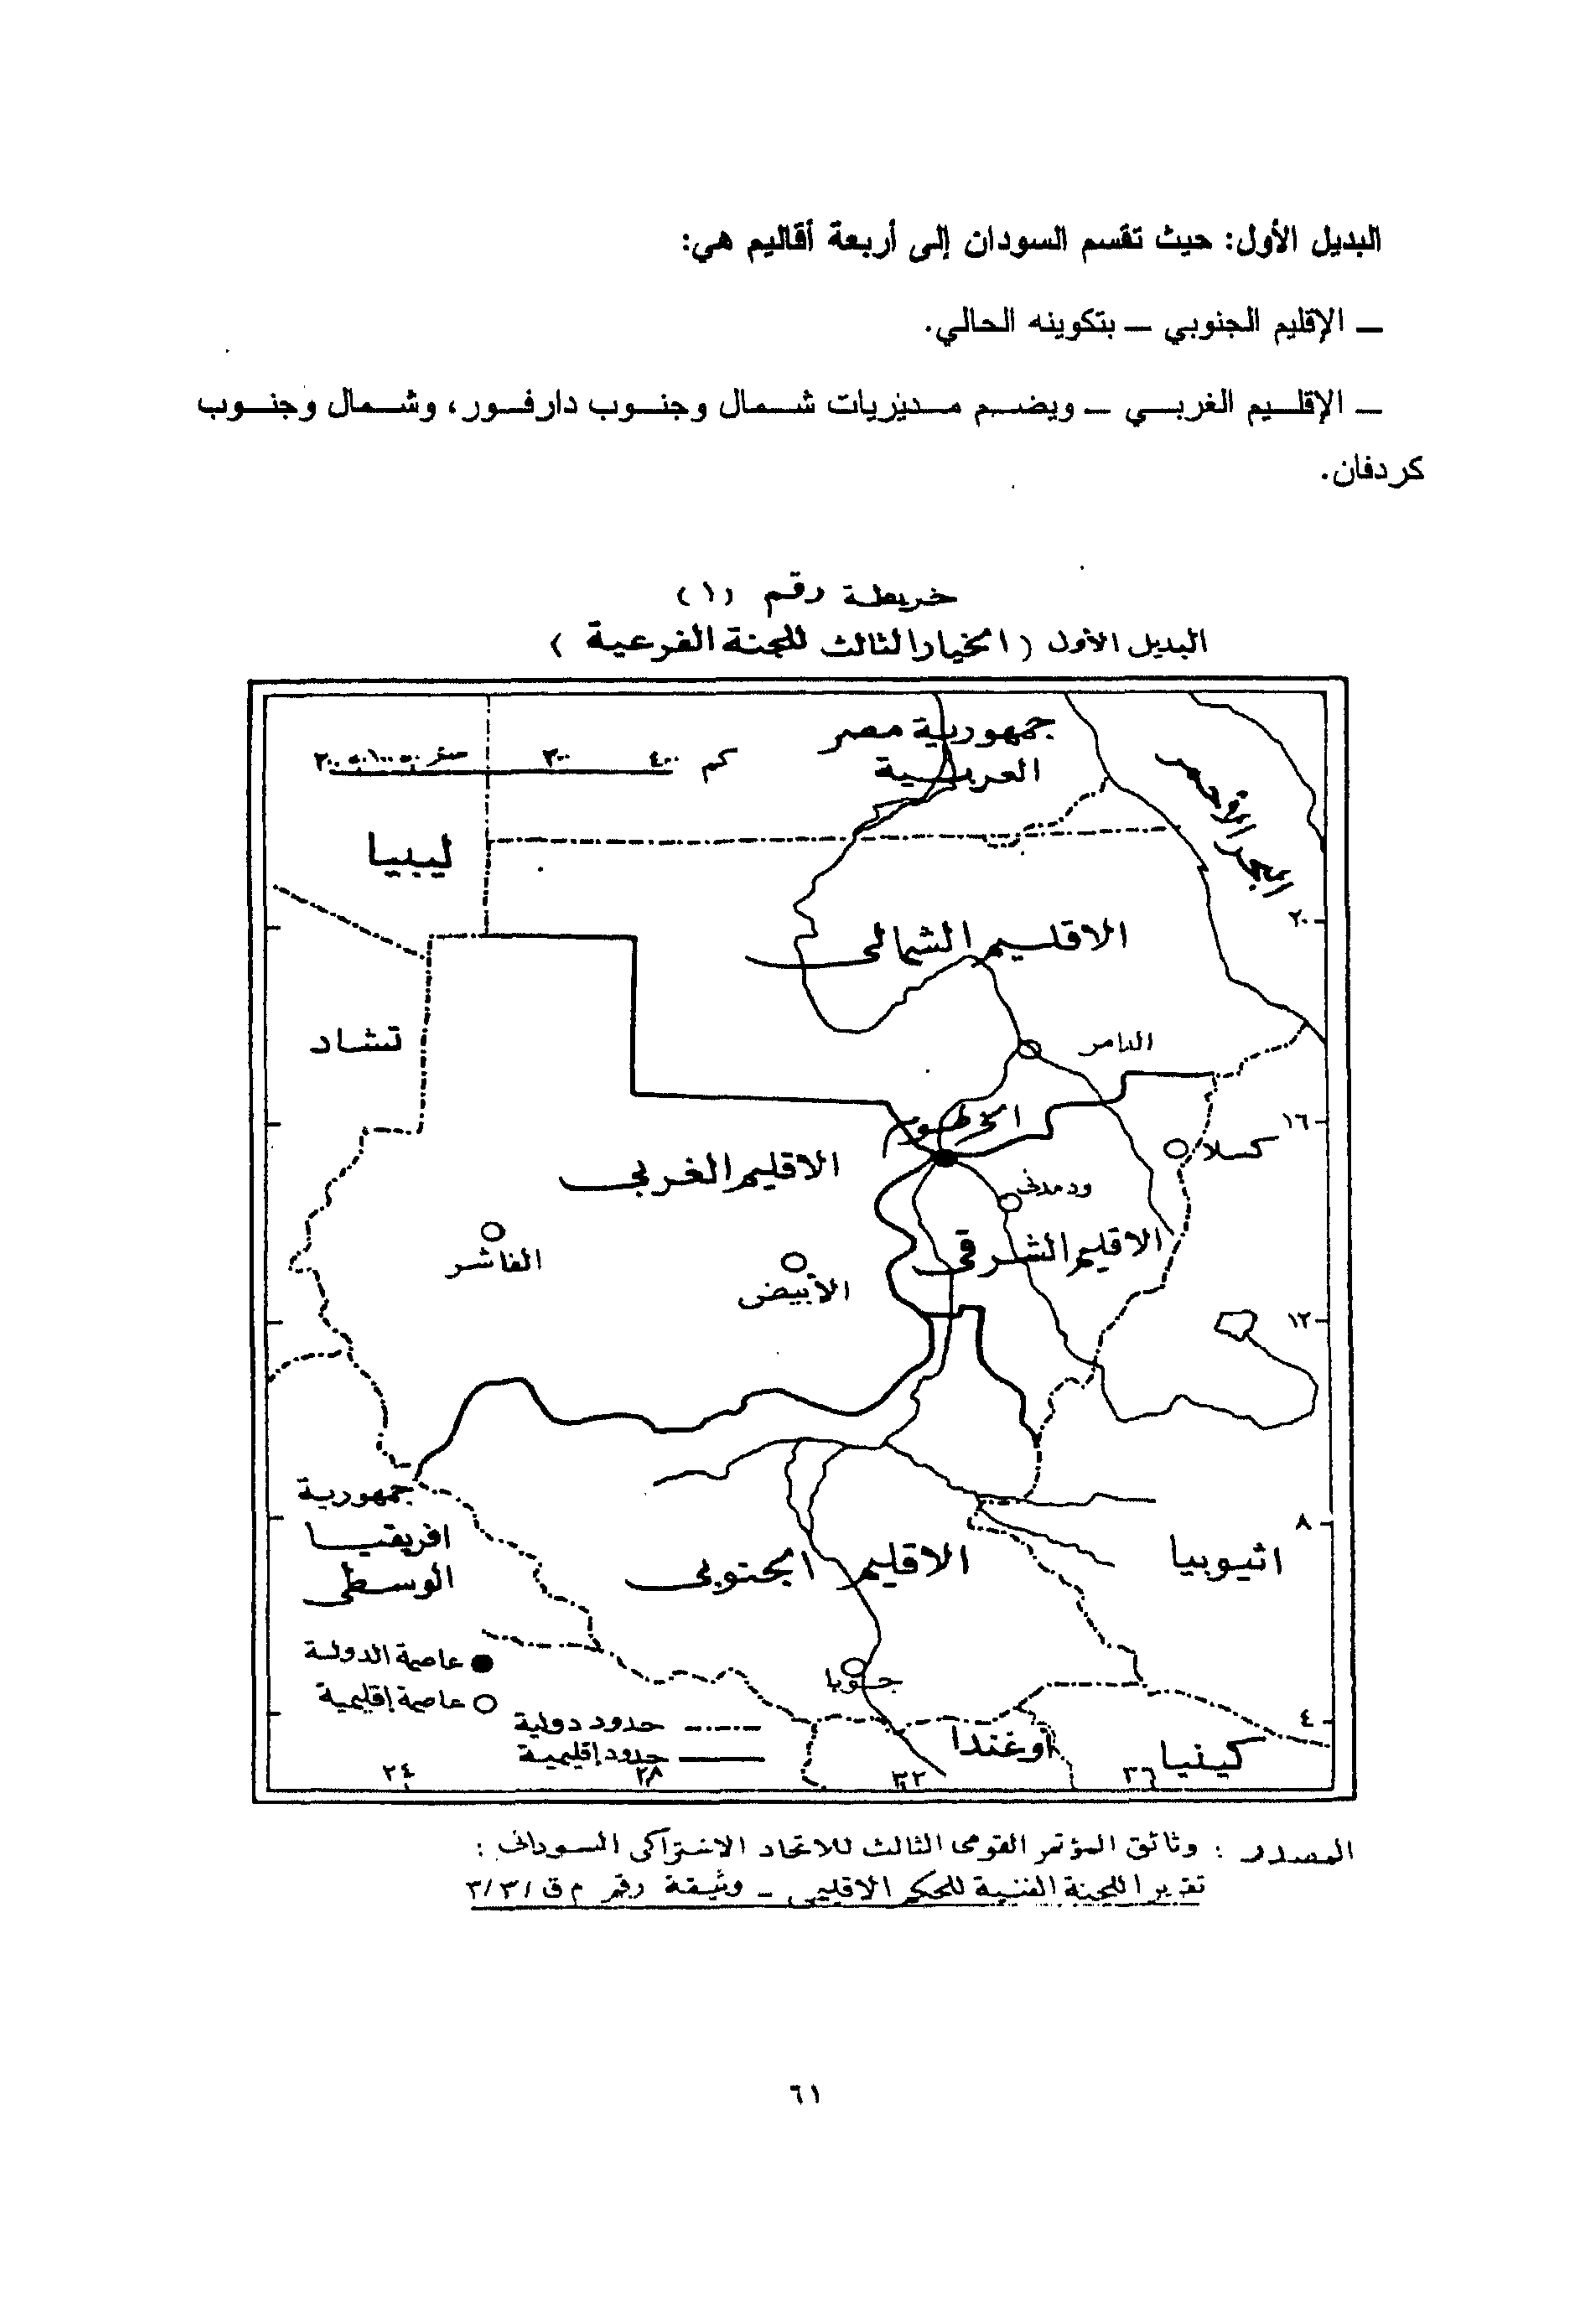 البديل الأول: حيث تقسم السودان إلى أربعة أقاليم هي:
– الإقليم الجنوبي – بتكوينه الحالي.
– الإقليم الغربي – ويضم مديريات شمال وجنوب دارفور، وشمال وجنوب
كردفان.
خريطة رقم (١)
البديل الأول (الخيار الثالث للجنة الفرعية)
جمهورية مصر
العربية
كم ٤٠٠ ٣٠٠ ٢٠٠ ١٠٠ ٥٠ صفر
البحر الأحمر
ليبيا
٢٠
الاقليم الشمالى
تشاد
الدامر
الخرطوم
١٦
كسلا
الاقليم الغربى
ود مدنى
الاقليم الشرقى
الفاشر
الأبيض
١٢
جمهورية
افريقيا
الوسطى
٨
اثيوبيا
الاقليم الجنوبى
عاصمة الدولة
عاصمة إقليمية
جوبا
حدود دولية
حدود إقليمية
٤
أوغندا
كينيا
٢٤ ٢٨ ٣٢ ٣٦
المصدر : وثائق المؤتمر القومى الثالث للاتحاد الاشتراكى السودانى :
تقرير اللجنة الفنية للحكم الاقليمى – وثيقة رقم م ق /٣/٣
٦١